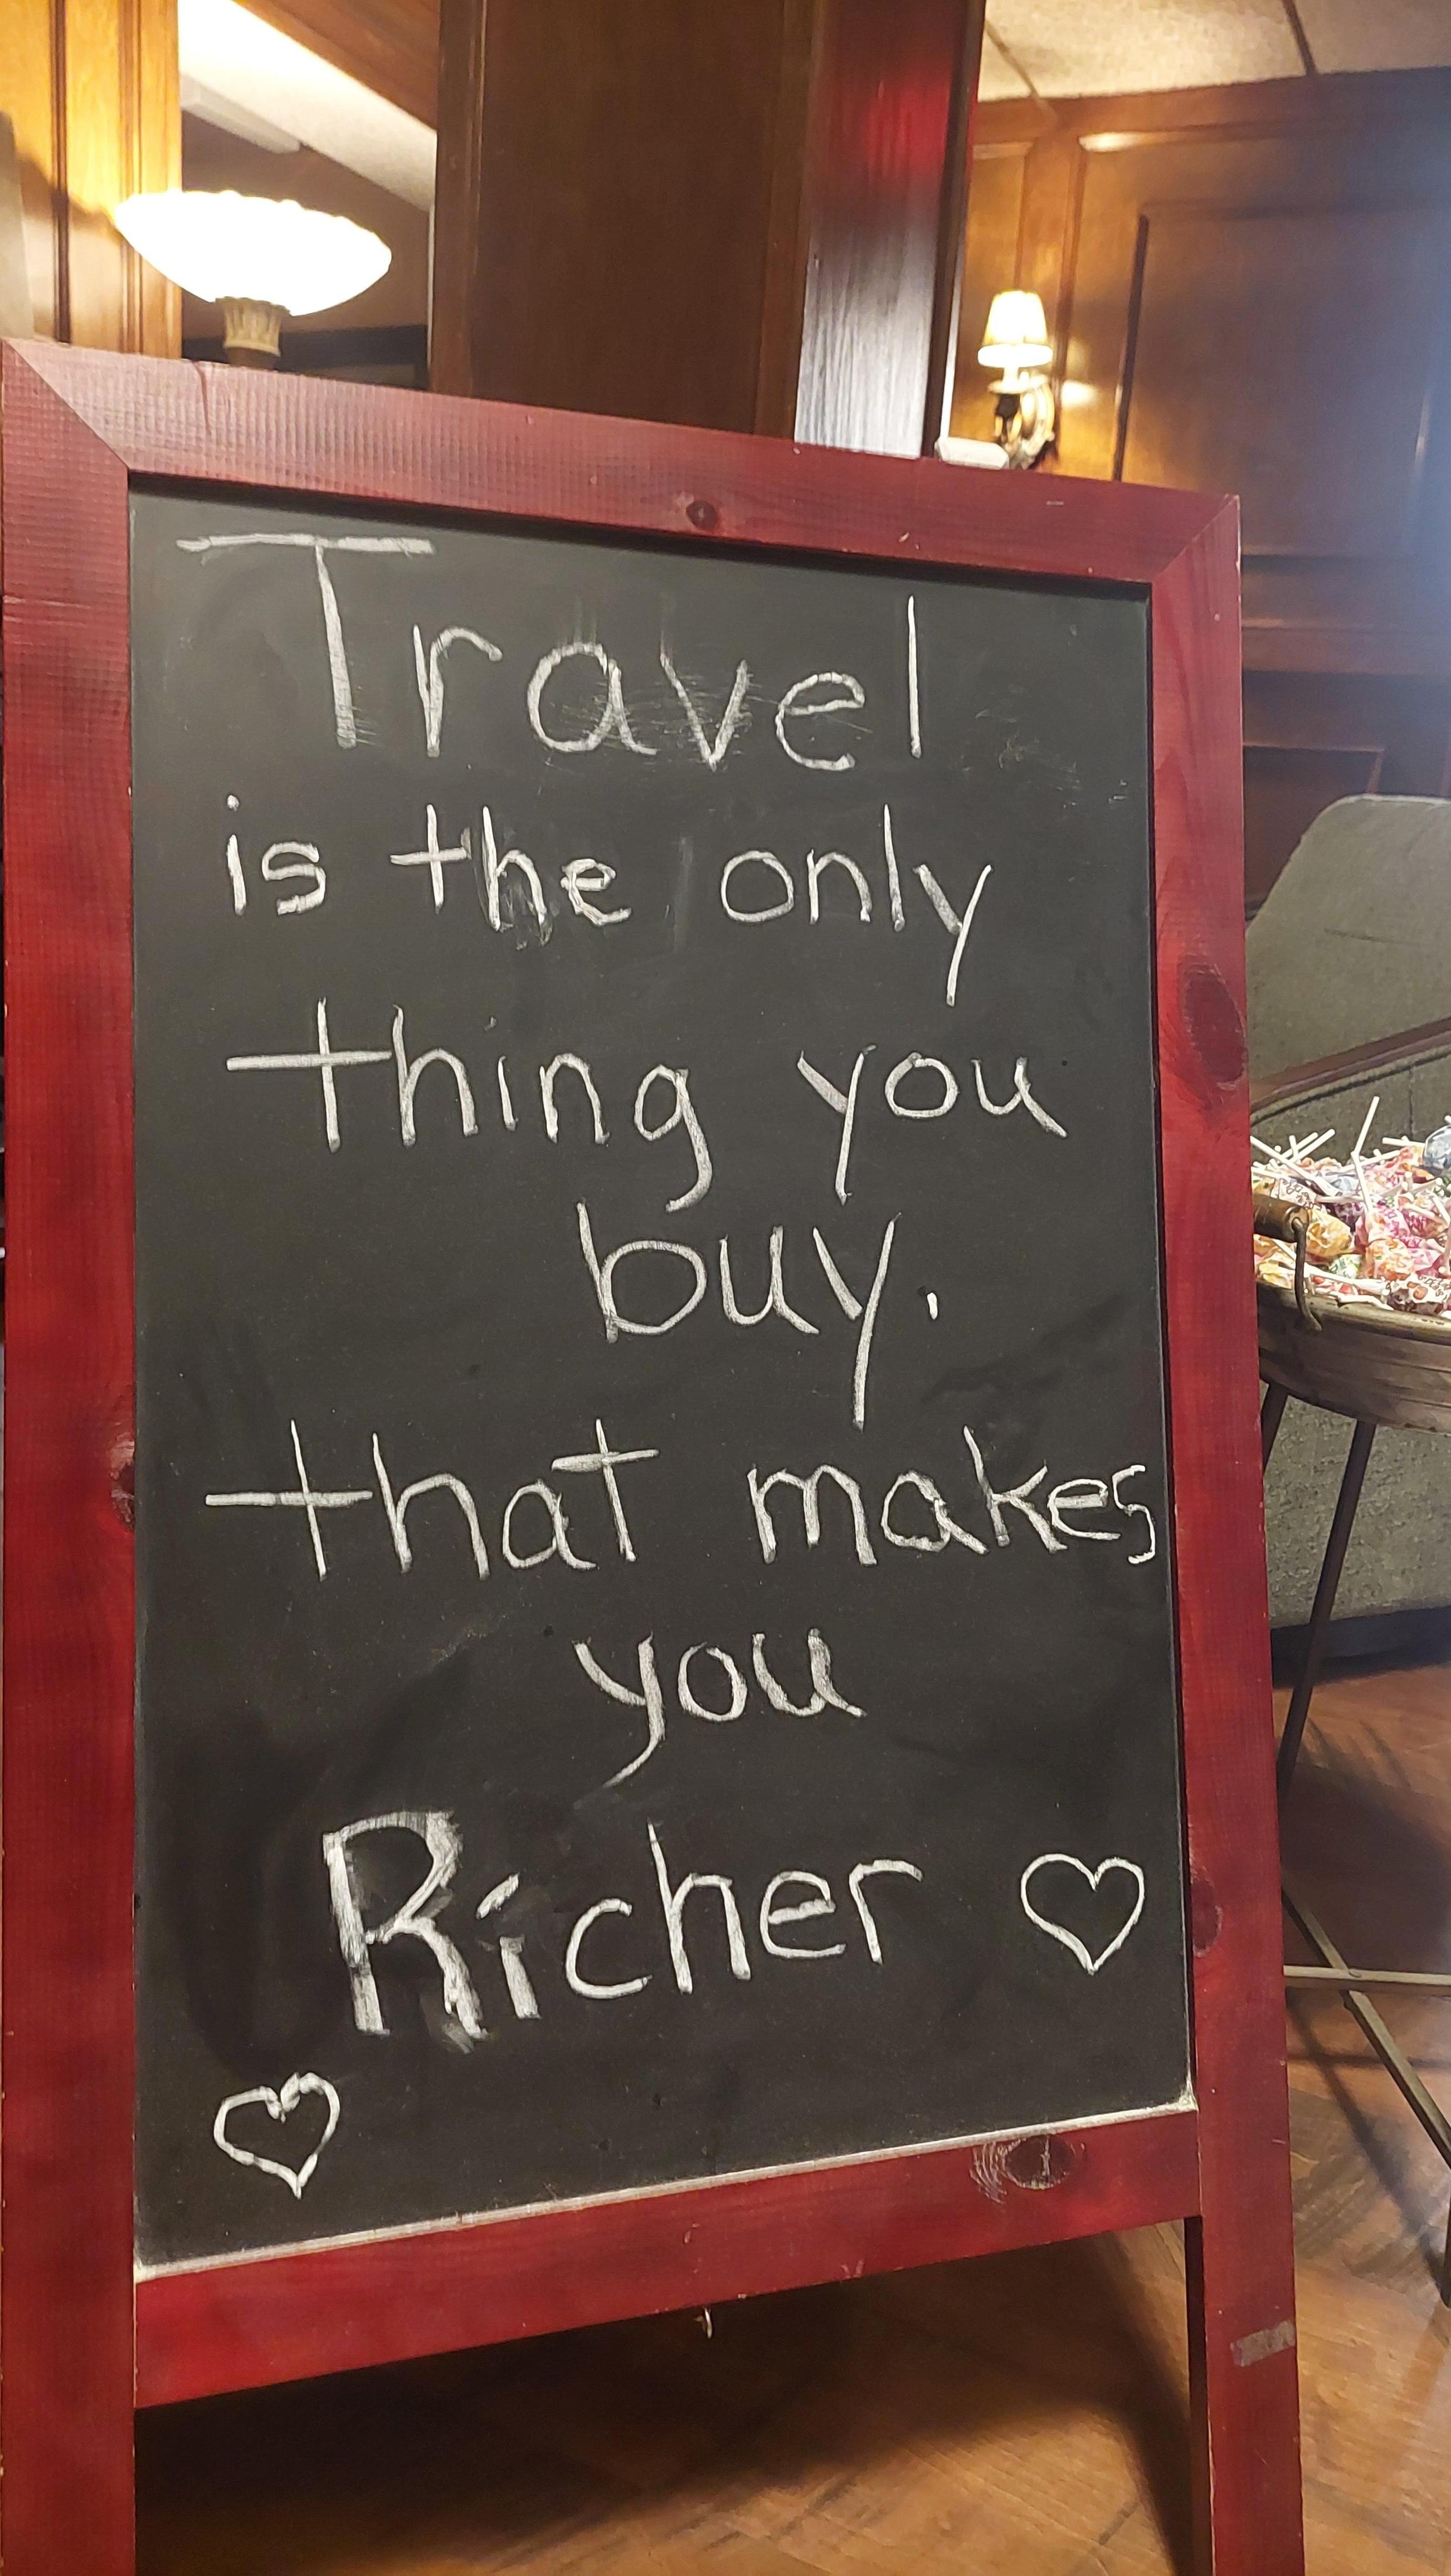 Travel
is the only
thing you
buy.
that makes
you
Richer